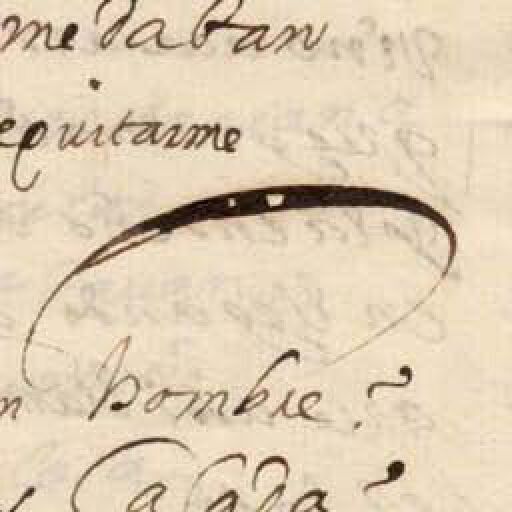 me daban
equitarme
n hombre?
y Casada?